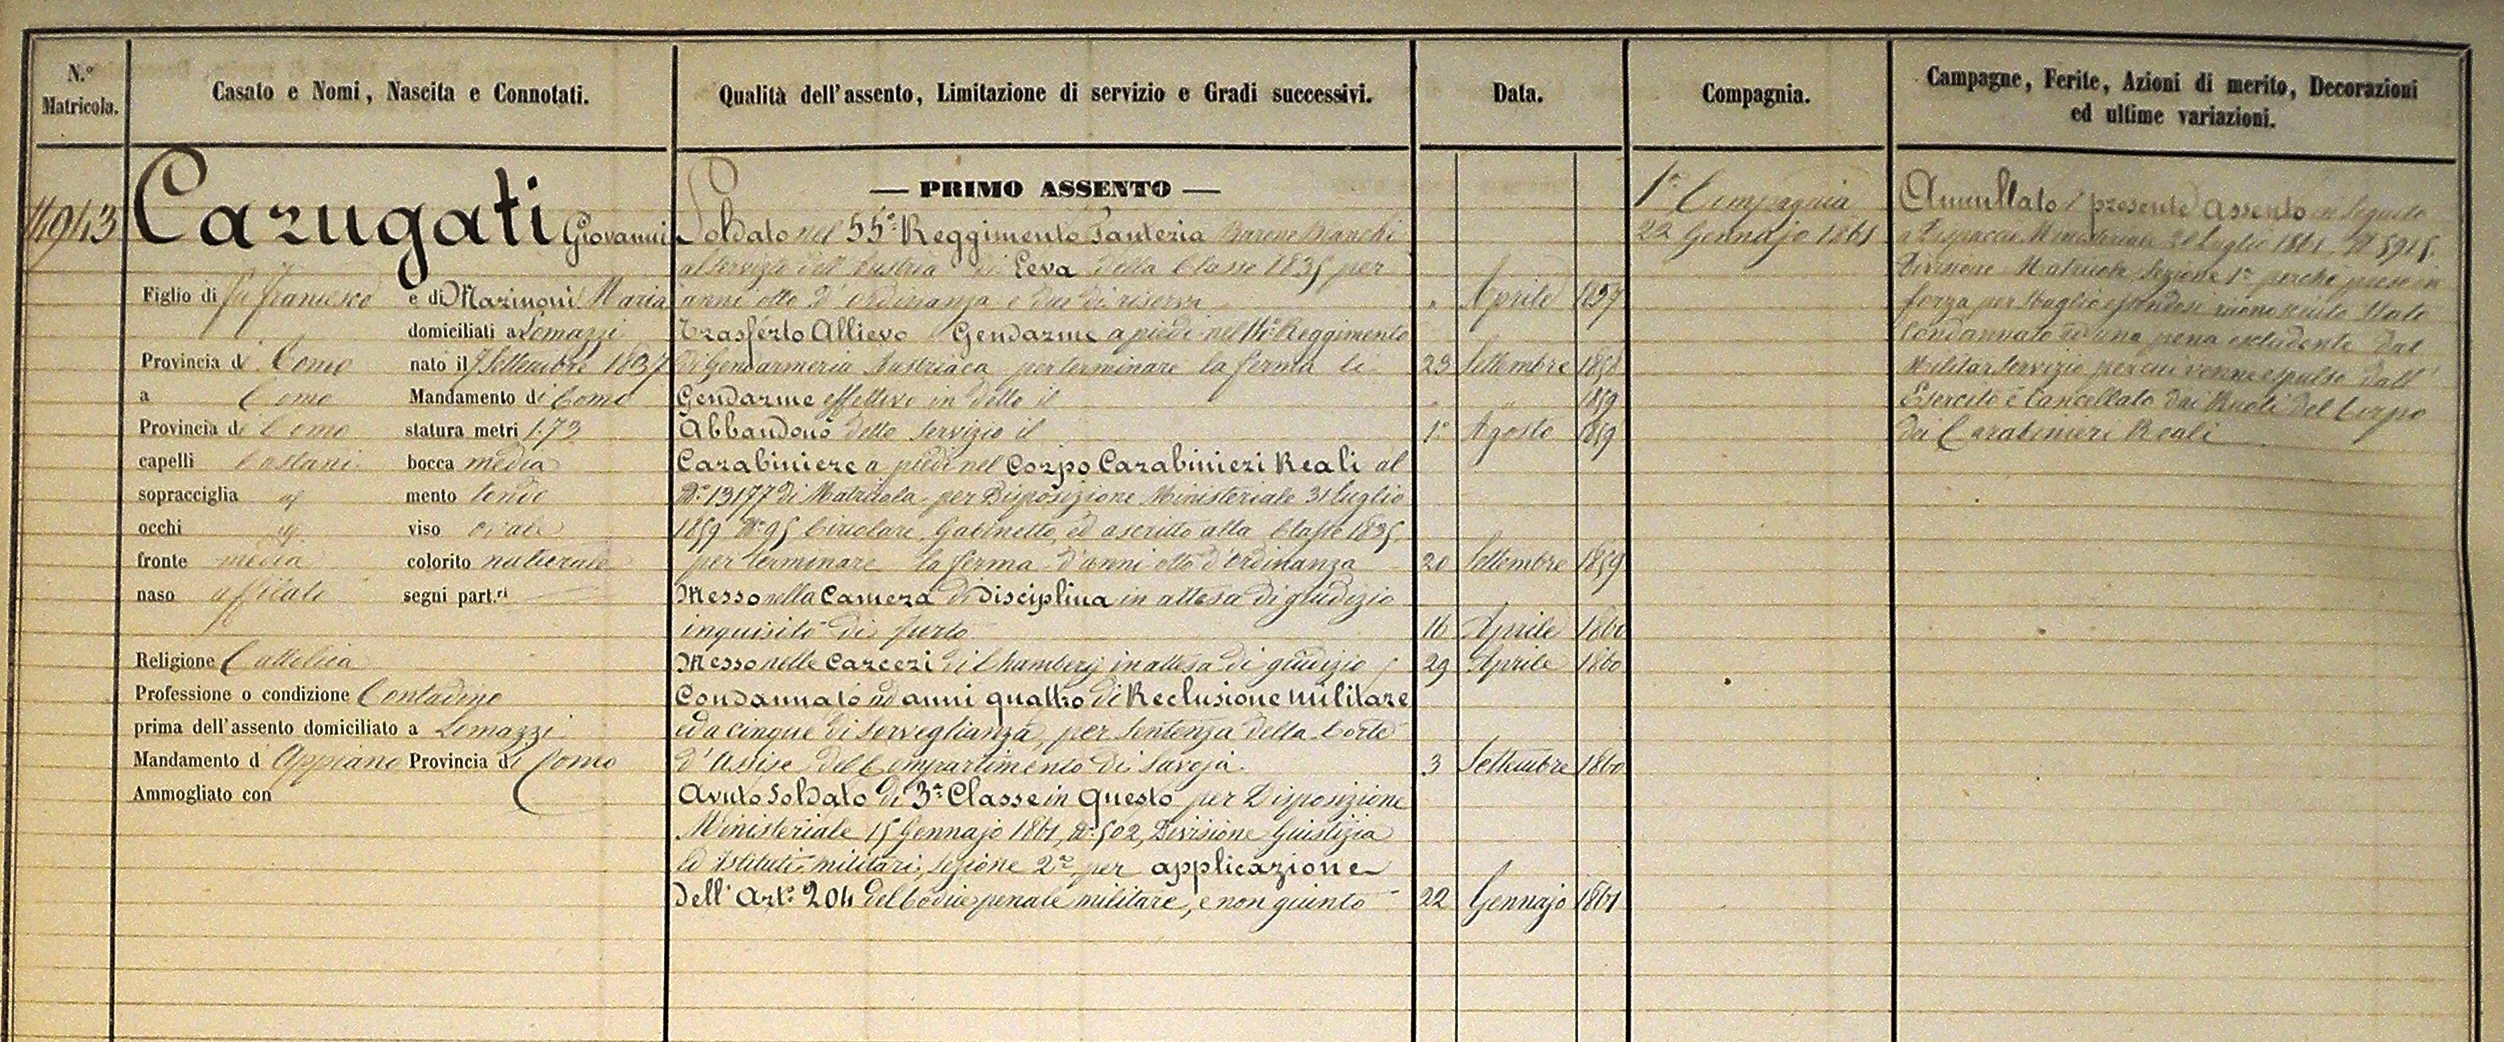 N.° Matricola.
Casato e Nomi, Nascita e Connotati.
Qualità dell'assento, Limitazione di servizio e Gradi successivi.
Data.
Compagnia.
Campagne, Ferite, Azioni di merito, Decorazioni
ed ultime variazioni.
Carugati Giovanni
Figlio di fu Francesco e di Marinoni Maria
domiciliati a Lomazzi
Provincia di Como nato il 7 Settembre 1837
a Como Mandamento di Como
Provincia di Como statura metri 1.73
capelli Castani bocca media
sopracciglia mento tondo
occhi viso ovale
fronte media colorito naturale
naso affilato segni part.ri
Religione Cattolica
Professione o condizione Contadino
prima dell'assento domiciliato a Lomazzi
Mandamento d Appiano Provincia di Como
Ammogliato con
— PRIMO ASSENTO —
Soldato nel 55° Reggimento Fanteria Barone Bianchi
al servizio dell'Austria di Leva della Classe 1835 per
anni otto d'ordinanza e due di riserva " Aprile 1857
Trasferto Allievo Gendarme a piedi nel 14° Reggimento
di Gendarmeria Austriaca per terminare la ferma li 23 Settembre 1858
Gendarme effettivo in detto il " " 1859
Abbandonò detto servizio il 1° Agosto 1859
Carabiniere a piedi nel Corpo Carabinieri Reali al
N° 13177 di Matricola per Disposizione Ministeriale 31 Luglio
1859 N° 95 Circolare Gabinetto, ed ascritto alla Classe 1835
per terminare la ferma d'anni otto d'ordinanza 20 Settembre 1859
Messo nella Camera di Disciplina in attesa di giudizio
inquisito di furto 16 Aprile 1860
Messo nelle Carceri di Chambery in attesa di giudizio 29 Aprile 1860
Condannato ad anni quattro di Reclusione militare
ed a cinque di Sorveglianza, per sentenza della Corte
d'Assise del Compartimento di Savoja. 3 Settembre 1860
Avuto Soldato di 3ª Classe in questo per Disposizione
Ministeriale 15 Gennajo 1861, N° 502, Divisione Giustizia
ed Istituti militari, Sezione 2ª per applicazione
dell'Art° 204 del Codice penale militare, e non giunto 22 Gennajo 1861
1ª Compagnia
22 Gennajo 1861
Annullato il presente assento in seguito
a Dispaccio Ministeriale 20 Luglio 1861, N° 5915.
Divisione Matricole Sezione 1ª perchè preso in
forza per sbaglio essendosi riconosciuto stato
condannato ad una pena escludente dal
Militar servizio per cui venne espulso dall'
Esercito e Cancellato dai Ruoli del Corpo
dei Carabinieri Reali